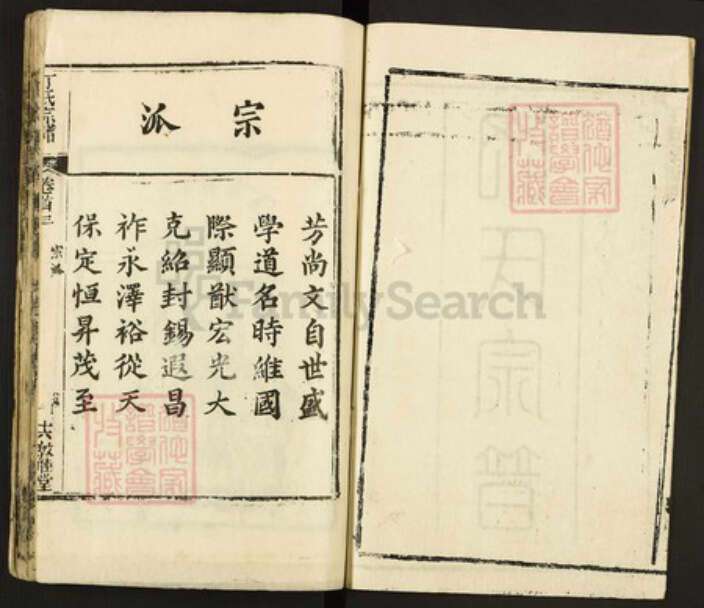 宗派
芳尚文自世盛
學道名時維國
際顯猷宏光大
克紹封錫遐昌
祚永澤裕從天
保定恒昇茂至
丁氏宗譜
卷首三
宗派
敦睦堂
FamilySearch